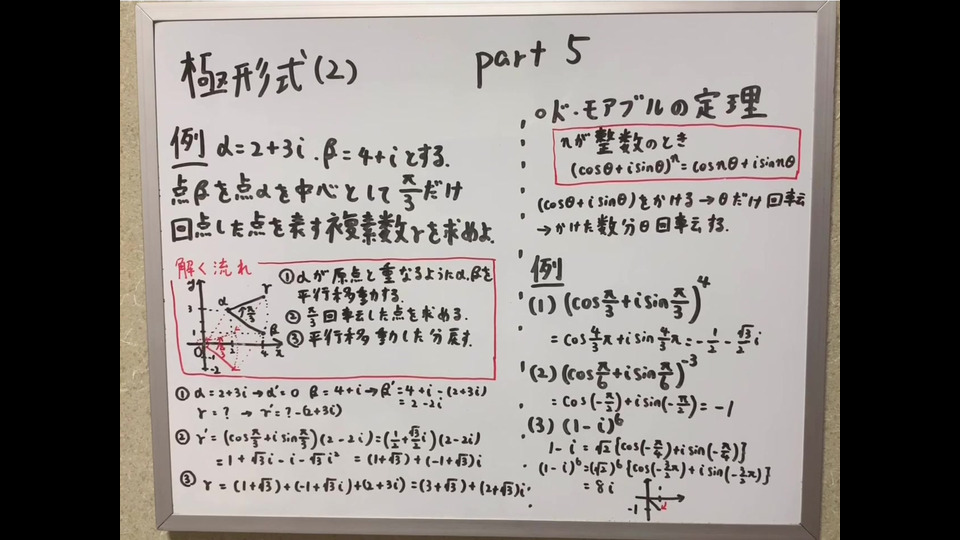 極形式(2)
part 5
例 α=2+3i. β=4+iとする.
点βを点αを中心としてπ/3だけ
回点した点を表す複素数γを求めよ.
解く流れ
y
3
1
O
-1
-2
2
4
x
α
γ
β
π/3
π/3
①αが原点と重なるようにα,βを
平行移動する.
②π/3回転した点を求める.
③平行移動した分戻す.
①α=2+3i→α'=0 β=4+i→β'=4+i-(2+3i)
=2-2i
γ=? → γ'=?-(2+3i)
②γ'=(cosπ/3+isinπ/3)(2-2i)=(1/2+√3/2i)(2-2i)
=1+√3i-i-√3i² =(1+√3)+(-1+√3)i
③γ=(1+√3)+(-1+√3i)+(2+3i)=(3+√3)+(2+√3)i
○ド・モアブルの定理
nが整数のとき
(cosθ+isinθ)ⁿ=cosnθ+isinnθ
(cosθ+isinθ)をかける→θだけ回転
→かけた数分θ回転する.
例
(1) (cosπ/3+isinπ/3)⁴
=cos4/3π+isin4/3π=-1/2-√3/2i
(2) (cosπ/6+isinπ/6)⁻³
=cos(-π/2)+isin(-π/2)=-1
(3) (1-i)⁶
1-i=√2{cos(-π/4)+isin(-π/4)}
(1-i)⁶=(√2)⁶{cos(-3/2π)+isin(-3/2π)}
=8i
1
-1